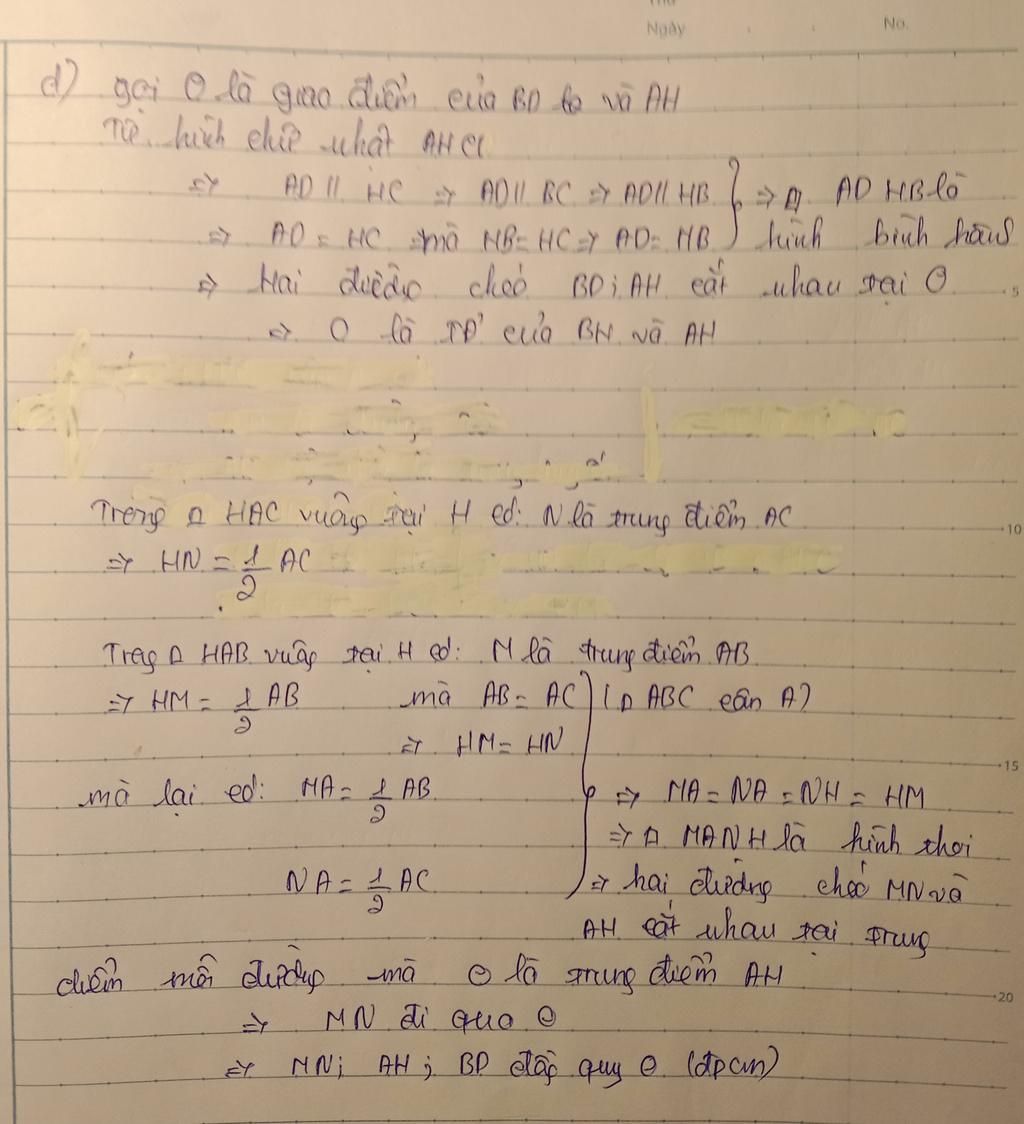 Thứ
Ngày . . No.
d) gọi O là giao điểm của BD và AH
Từ hình chữ nhật AHCD
=> AD // HC => AD // BC => AD // HB } => □ ADHB là
=> AD = HC mà HB = HC => AD = HB } hình bình hành
=> Hai đường chéo BD; AH cắt nhau tại O
5
=> O là TĐ' của BH và AH
Trong △ HAC vuông tại H có: N là trung điểm AC
10
=> HN = 1/2 AC
Trong △ HAB vuông tại H có: M là trung điểm AB
=> HM = 1/2 AB mà AB = AC } (△ ABC cân A)
=> HM = HN
15
mà lại có: MA = 1/2 AB => MA = NA = NH = HM
=> □ MANH là hình thoi
NA = 1/2 AC => hai đường chéo MN và
AH cắt nhau tại trung
điểm mỗi đường mà O là trung điểm AH
20
=> MN đi qua O
=> MN; AH; BD đồng quy O (đpcm)